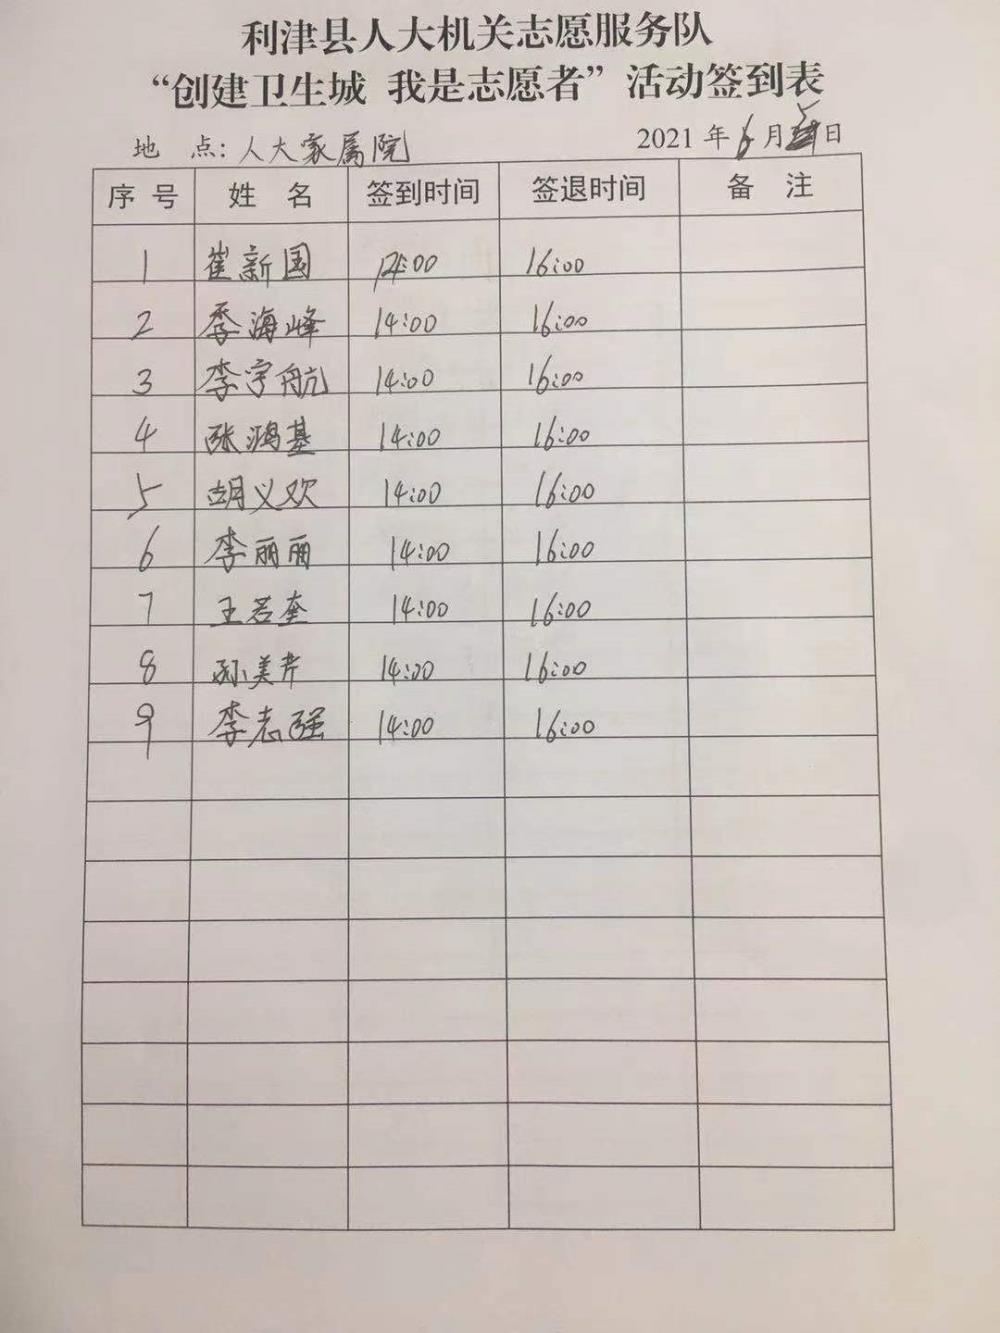 利津县人大机关志愿服务队
“创建卫生城 我是志愿者”活动签到表
地 点:人大家属院 2021年6月 日
序号 姓名 签到时间 签退时间 备注
1 崔新国 14:00 16:00
2 季海峰 14:00 16:00
3 李宇航 14:00 16:00
4 张鸿基 14:00 16:00
5 胡义欢 14:00 16:00
6 李丽丽 14:00 16:00
7 王若奎 14:00 16:00
8 孙美芹 14:00 16:00
9 李志强 14:00 16:00